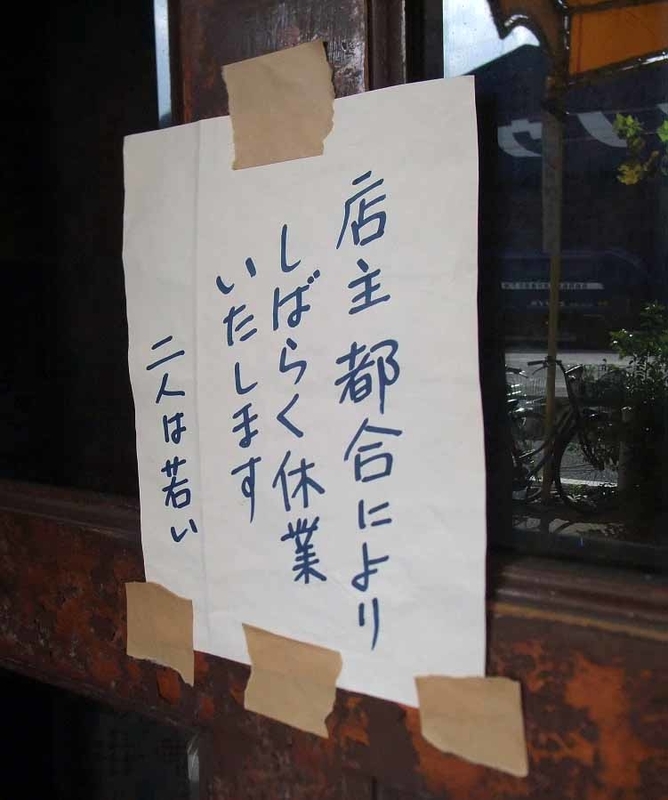 店主 都合により
しばらく休業
いたします
二人は若い